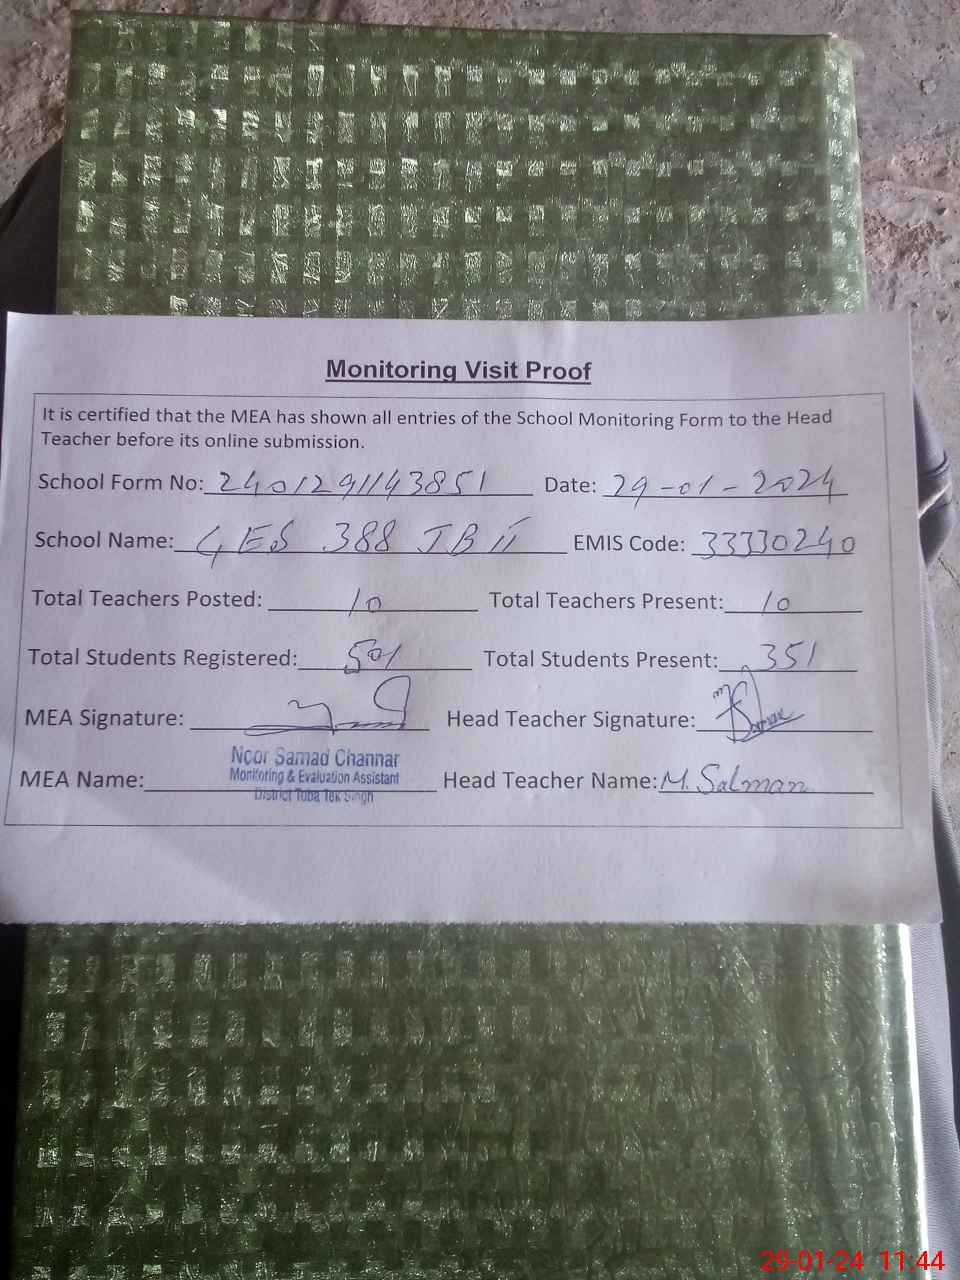 Monitoring Visit Proof
It is certified that the MEA has shown all entries of the School Monitoring Form to the Head
Teacher before its online submission.
School Form No: 2401291143851 Date: 29-01-2024
School Name: GES 388 JB II EMIS Code: 33330240
Total Teachers Posted: 10 Total Teachers Present: 10
Total Students Registered: 501 Total Students Present: 351
MEA Signature: Head Teacher Signature:
Noor Samad Channar
Monitoring & Evaluation Assistant
District Toba Tek Singh
MEA Name: Head Teacher Name: M. Salman
29-01-24 11:44